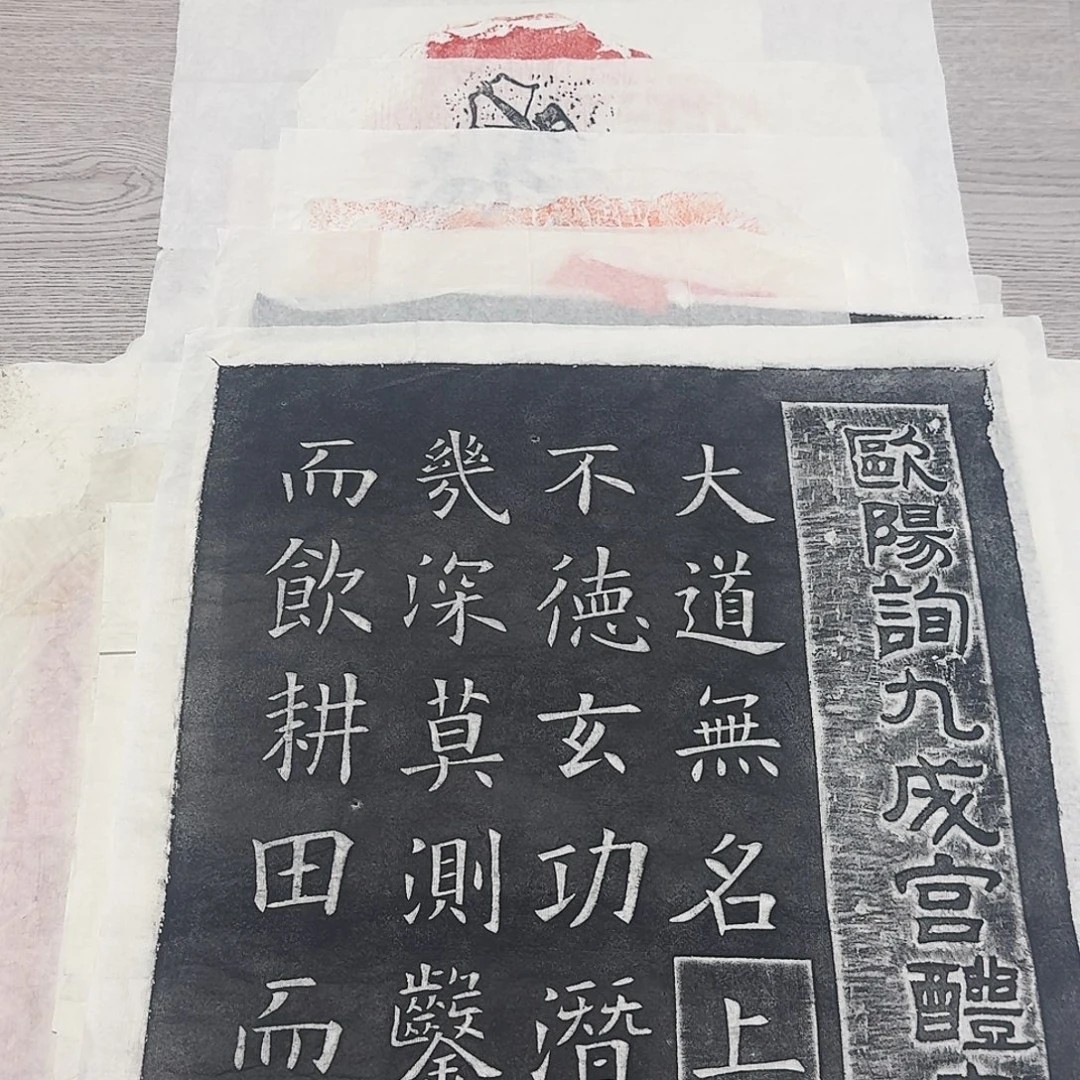 歐陽詢九成宮醴
大道無名上
不德玄功潛
幾深莫測鑿
而飲耕田而